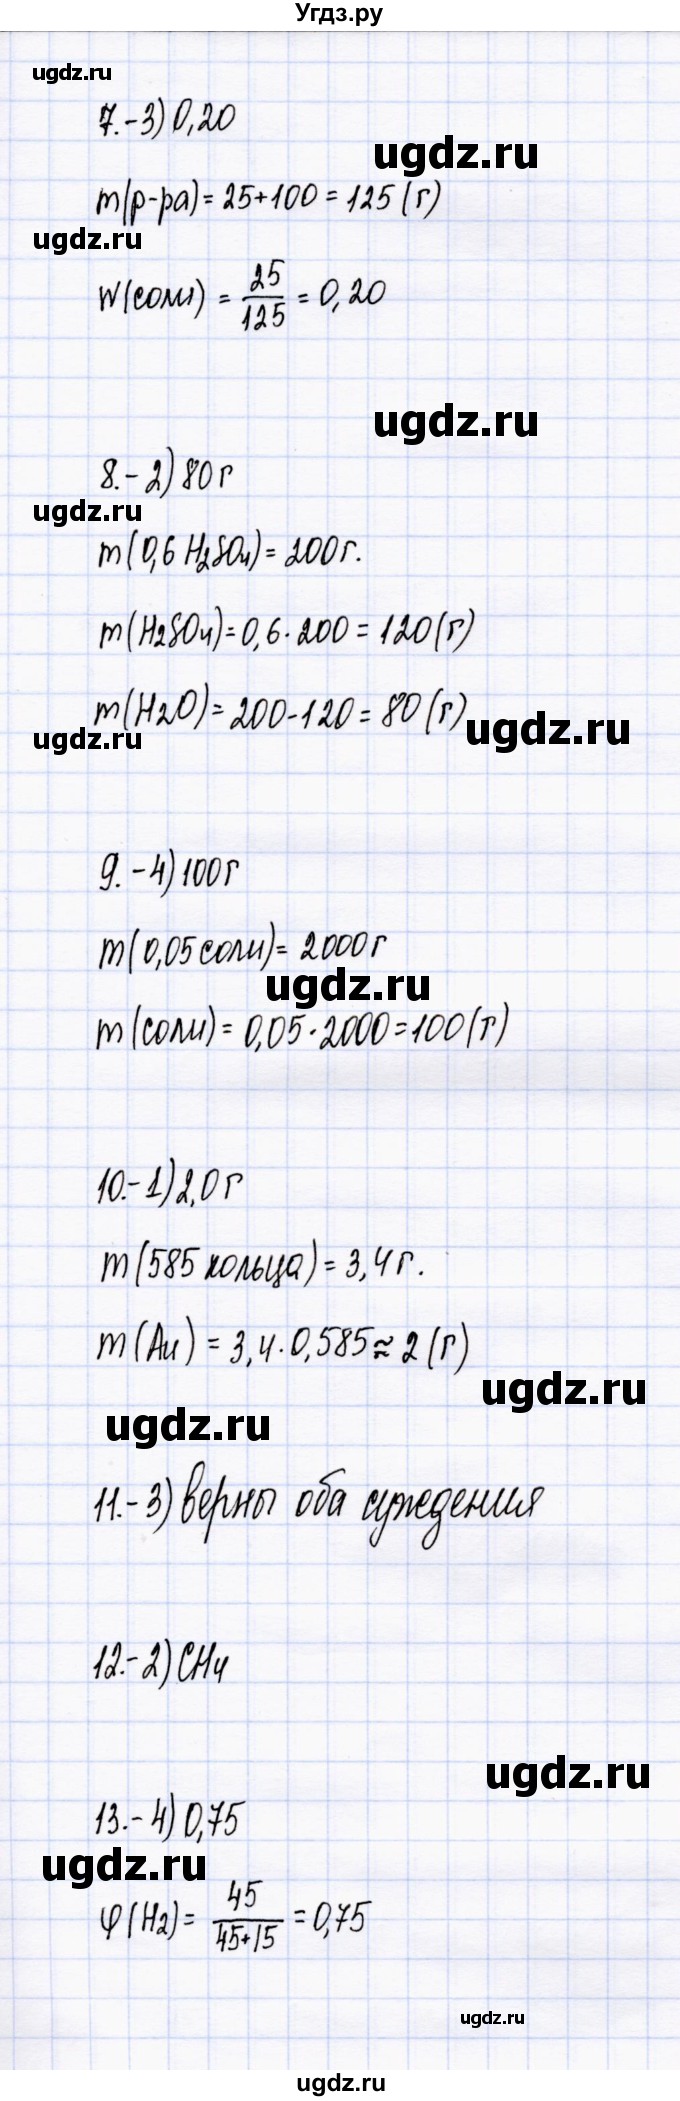 Угдз.ру
ugdz.ru
7.-3) 0,20
ugdz.ru
m(р-ра) = 25+100 = 125 (г)
ugdz.ru
W(соли) = 25/125 = 0,20
ugdz.ru
8.-2) 80 г
ugdz.ru
m(0,6 H2SO4) = 200 г.
m(H2SO4) = 0,6·200 = 120 (г)
m(H2O) = 200-120 = 80 (г)
ugdz.ru
ugdz.ru
9.-4) 100 г
m(0,05 соли) = 2000 г
ugdz.ru
m(соли) = 0,05·2000 = 100 (г)
10.-1) 2,0 г
m(585 кольца) = 3,4 г.
m(Au) = 3,4·0,585 ≈ 2 (г)
ugdz.ru
ugdz.ru
11.-3) верны оба суждения
12.-2) CH4
ugdz.ru
13.-4) 0,75
ugdz.ru
φ(H2) = 45/45+15 = 0,75
ugdz.ru
ugdz.ru